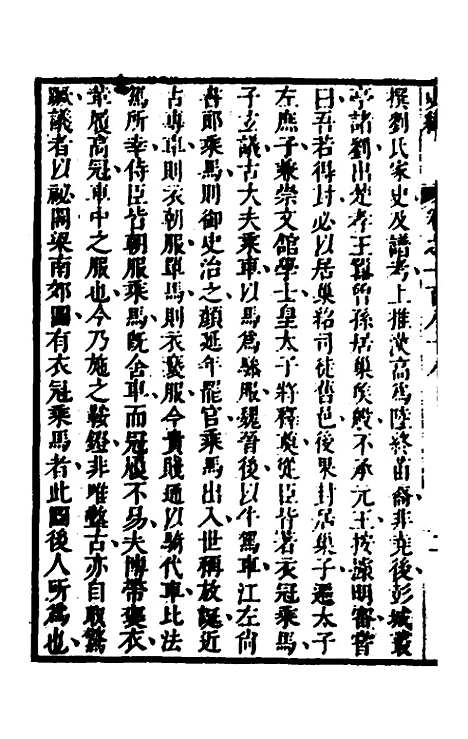 撰劉氏家史及譜考上推漢高為陸終苗裔非堯後彭城叢
亭諸劉出楚孝王囂曾孫居巢侯般不承元王按據明審嘗
曰吾若得封必以居巢紹司徒舊邑後果封居巢子遷太子
左庶子兼崇文館學士皇太子將釋奠從臣皆著衣冠乘馬
子玄議古大夫乘車以馬為騑服魏晉後以牛駕車江左尚
書郎乘馬則御史治之顏延年罷官乘馬出入世稱放誕近
古專車則衣朝服單馬則衣褻服今貴賤通以騎代車比法
駕所幸侍臣皆朝服乘馬既舍車而冠履不易夫博帶褒衣
革履高冠車中之服也今乃施之鞍鐙非唯盭古亦自取驚
蹶議者以祕閣梁南郊圖有衣冠乘馬者此圖後人所為也